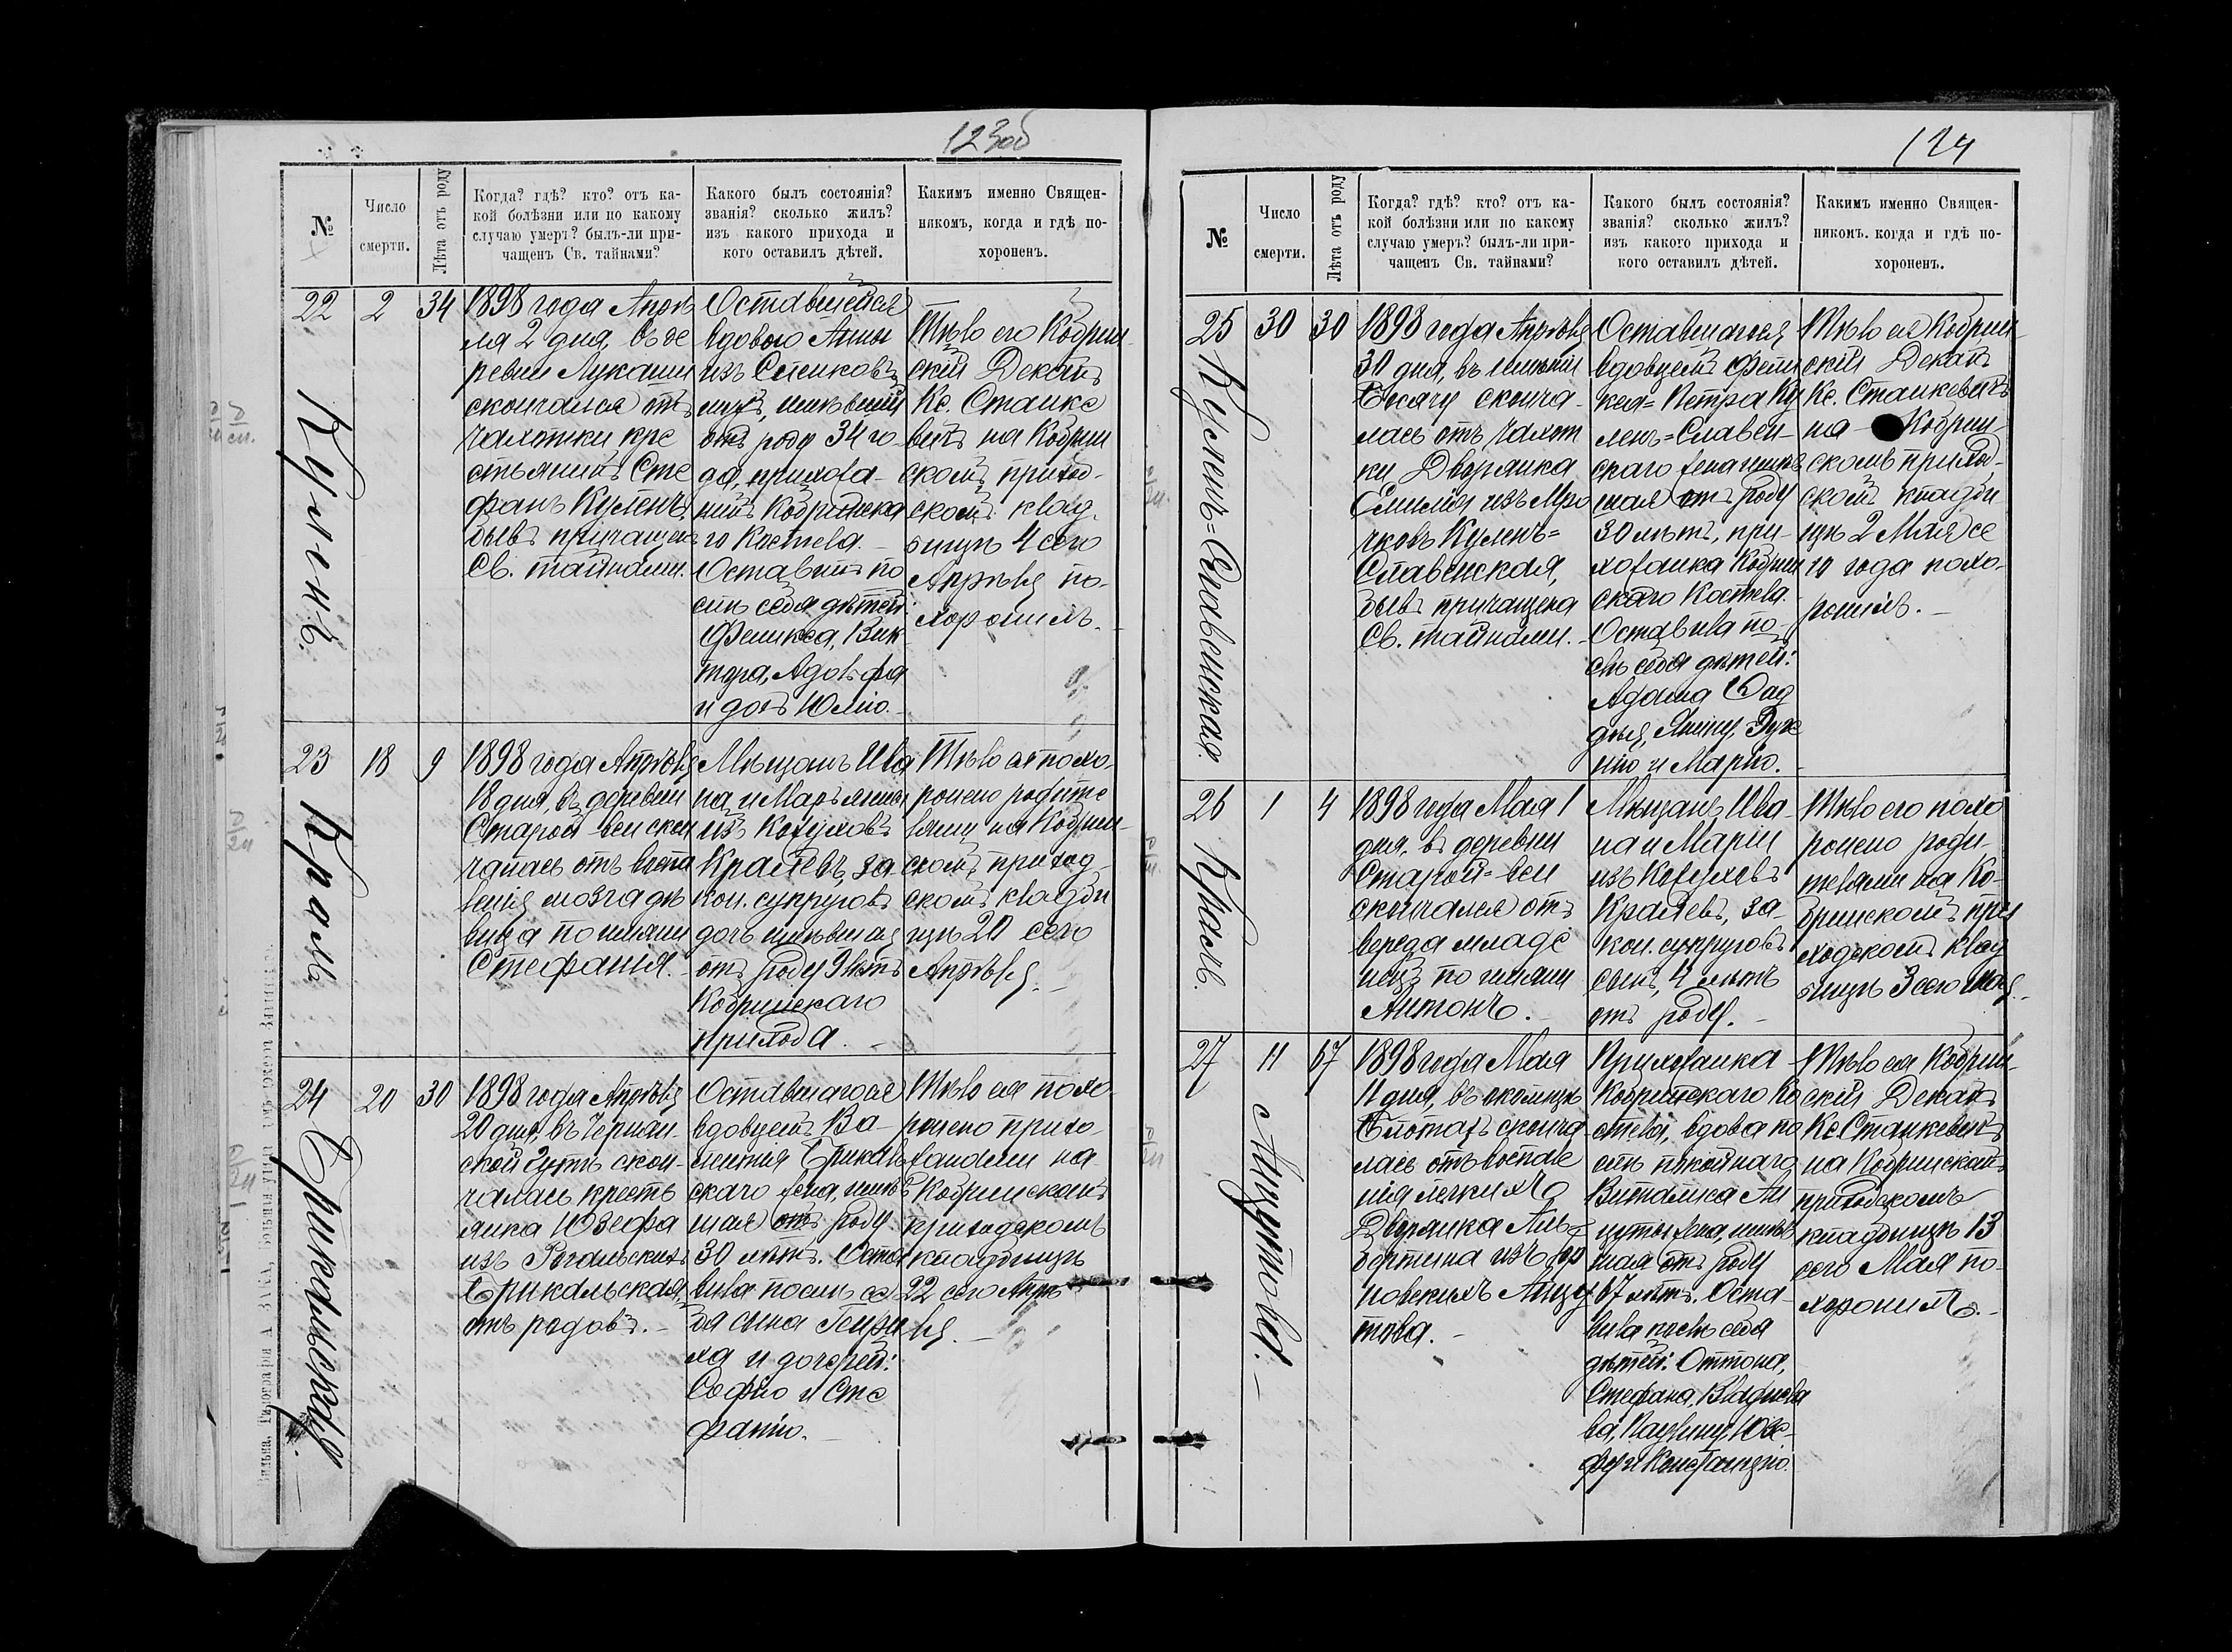 123об
№
Число
смерти.
Лѣта отъ роду
Когда? гдѣ? кто? отъ ка-
кой болѣзни или по какому
случаю умеръ? былъ-ли при-
чащенъ Св. тайнами?
Какого былъ состоянія?
званія? сколько жилъ?
изъ какого прихода и
кого оставилъ дѣтей.
Какимъ именно Священ-
никомъ, когда и гдѣ по-
хороненъ.
22
2
34
Куленъ.
1898 года Апрѣ
ля 2 дня, въ де
ревни Лукаши
скончался отъ
чахотки кре
стьянинъ Сте
фанъ Куленъ,
бывъ причащенъ
Св. тайнами.
Оставшейся
вдовою Анны
изъ
мужъ, имѣвшій
отъ роду 34 го-
да, прихожа-
нинъ Кобринска
го Костела.
Оставилъ по
слѣ себя дѣтей:
Феликса, Вик
тора, Адольфа
и дочь Юлію.
Тѣло его Кобрин-
скій Деканъ
Кс. Станке
вичъ на Кобрин
скомъ приход-
скомъ клад-
бищѣ 4 сего
Апрѣля по-
хоронилъ.
23
18
9
Краль
1898 года Апрѣля
18 дня, въ деревни
Старой-веи скон
чалась отъ воспа
ленія мозга дѣ
вица по имяни
Стефанія.
Мѣщанъ Ива
на и Марьянны
изъ Кожуховъ
Кралевъ, за-
кон. супруговъ
дочь имѣвшая
отъ роду 9 лѣтъ
Кобринскаго
прихода.
Тѣло ея похо-
ронено родите
лями на Кобрин-
скомъ приход-
скомъ кладби
щѣ 20 сего
Апрѣля.
24
20
30
Брикальская.
1898 года Апрѣля
20 дня, въ Черман-
ской Гутѣ скон-
чалась кресть
янка Юзефа
изъ Рогальскихъ
Брикальская,
отъ родовъ.
Оставшагося
вдовцемъ Ва-
лентія Брикаль
скаго жена, имѣв
шая отъ роду
30 лѣтъ. Оста
вила послѣ се-
бя сына Генри
ха и дочерей:
Софію и Сте
фанію.
Тѣло ея похо-
ронено прихо-
жанами на
Кобринскомъ
приходскомъ
кладбищѣ
22 сего Апрѣ
ля.
124
№
Число
смерти.
Лѣта отъ роду
Когда? гдѣ? кто? отъ ка-
кой болѣзни или по какому
случаю умеръ? былъ-ли при-
чащенъ Св. тайнами?
Какого былъ состоянія?
званія? сколько жилъ?
изъ какого прихода и
кого оставилъ дѣтей.
Какимъ именно Священ-
никомъ. когда и гдѣ по-
хороненъ.
25
30
30
Куленъ=Славенская.
1898 года Апрѣля
30 дня, въ имѣніи
сконча-
лась отъ чахот
ки Дворянка
Емилія изъ Мро
чковъ Куленъ=
Славенская,
бывъ причащена
Св. тайнами.
Оставшагося
вдовцемъ Фели
кса=Петра Ку
ленъ=Славен-
скаго жена имѣв
шая отъ роду
30 лѣтъ, при-
хожанка Кобрин
скаго Костела.
Оставила по-
слѣ себя дѣтей:
Адама Фад
дея, Янину, Эуге
нію и Марію.
Тѣло ея Кобрин-
скій Деканъ
Кс. Станкевичъ
на Кобрин-
скомъ приход-
скомъ кладби
щѣ 2 Мая се
го года похо-
ронилъ.
26
1
4
Краль.
1898 года Мая 1
дня, въ деревни
Старой=веи
скончался отъ
вереда младе
нецъ по имяни
Антонъ.
Мѣщанъ Ива-
на и Маріи
изъ Кожуховъ
Кралевъ, за-
кон. супруговъ
сынъ, 4 лѣтъ
отъ роду.
Тѣло его похо
ронено роди-
телями на Ко-
бринскомъ при
ходскомъ клад
бищѣ 3 сего Мая.
27
11
67
Анцутова.
1898 года Мая
11 дня, въ околицѣ
Блотахъ сконча
лась отъ воспале
нія легкихъ
Дворянка Аль-
бертина изъ
новскихъ Анцу
това.
Прихожанка
Кобринскаго Ко
стела, вдова по
слѣ покойнаго
Виталиса Ан
цуты жена, имѣв
шая отъ роду
67 лѣтъ. Оста-
вила послѣ себя
дѣтей: Оттона,
Стефана, Владисла
ва, Паулину, Юзе-
фу и Констанцію.
Тѣло ея Кобрин-
скій Деканъ
Кс. Станкевичъ
на Кобринскомъ
приходскомъ
кладбищѣ 13
сего Мая по-
хоронилъ.